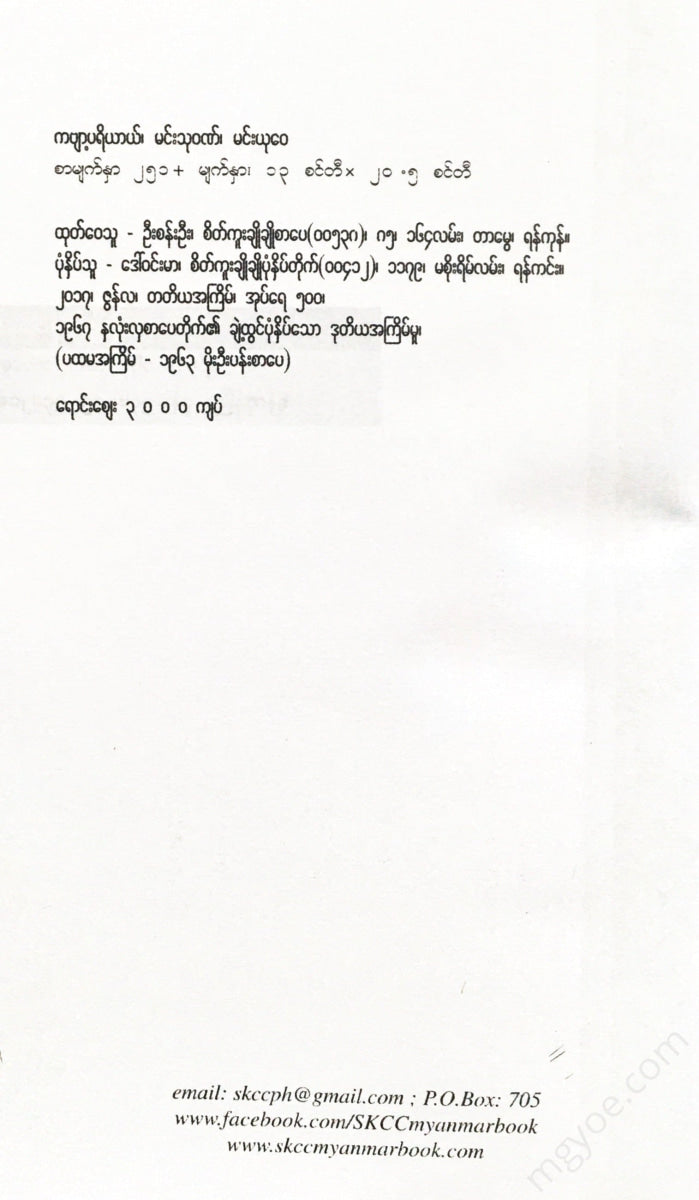 ကဗျာ့ပရိယာယ်၊ မင်းသုဝဏ်၊ မင်းယုဝေ
စာမျက်နှာ ၂၅၁+ မျက်နှာ၊ ၁၃ စင်တီ× ၂၀.၅ စင်တီ
ထုတ်ဝေသူ - ဦးစန်းဦး၊ စိတ်ကူးချိုချိုစာပေ(၀၀၅၃၈)၊ ဂ၅၊ ၁၆၄လမ်း၊ တာမွေ၊ ရန်ကုန်။
ပုံနှိပ်သူ - ဒေါ်ဝင်းမာ၊ စိတ်ကူးချိုချိုပုံနှိပ်တိုက်(၀၀၄၁၂)၊ ၁၁၇၉၊ မစိုးရိမ်လမ်း၊ ရန်ကင်း။
၂၀၁၇၊ ဇွန်လ၊ တတိယအကြိမ်၊ အုပ်ရေ ၅၀၀၊
၁၉၆၇ နှလုံးလှစာပေတိုက်၏ ချဲ့ထွင်ပုံနှိပ်သော ဒုတိယအကြိမ်မူ၊
(ပထမအကြိမ် - ၁၉၆၃ မိုးဦးပန်းစာပေ)
ရောင်းဈေး ၃ ၀ ၀ ၀ ကျပ်
email: skccph@gmail.com ; P.O.Box: 705
www.facebook.com/SKCCmyanmarbook
www.skccmyanmarbook.com
mgyoe.com